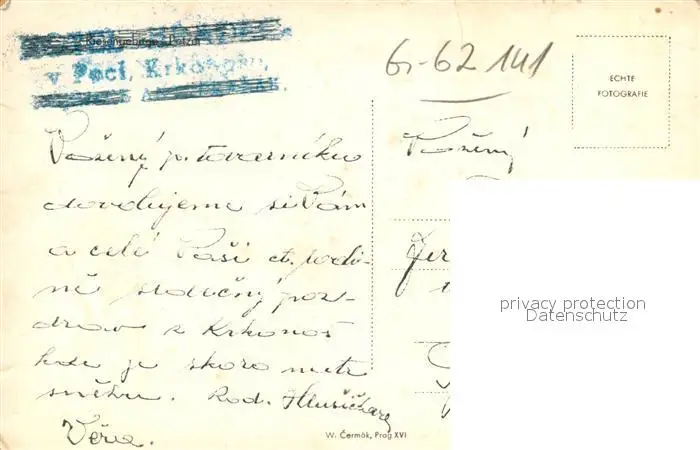 v Peci, Krkonoše.
61-62 141
ECHTE
FOTOGRAFIE
Vážený p. továrníku
dovolujeme si Vám
a celé Vaší ct. rodi-
ně srdečný poz-
drav z Krkonoš
kde je skoro metr
sněhu. Rod.
Věra.
Vážený
privacy protection
Datenschutz
W. Čermák, Prag XVI